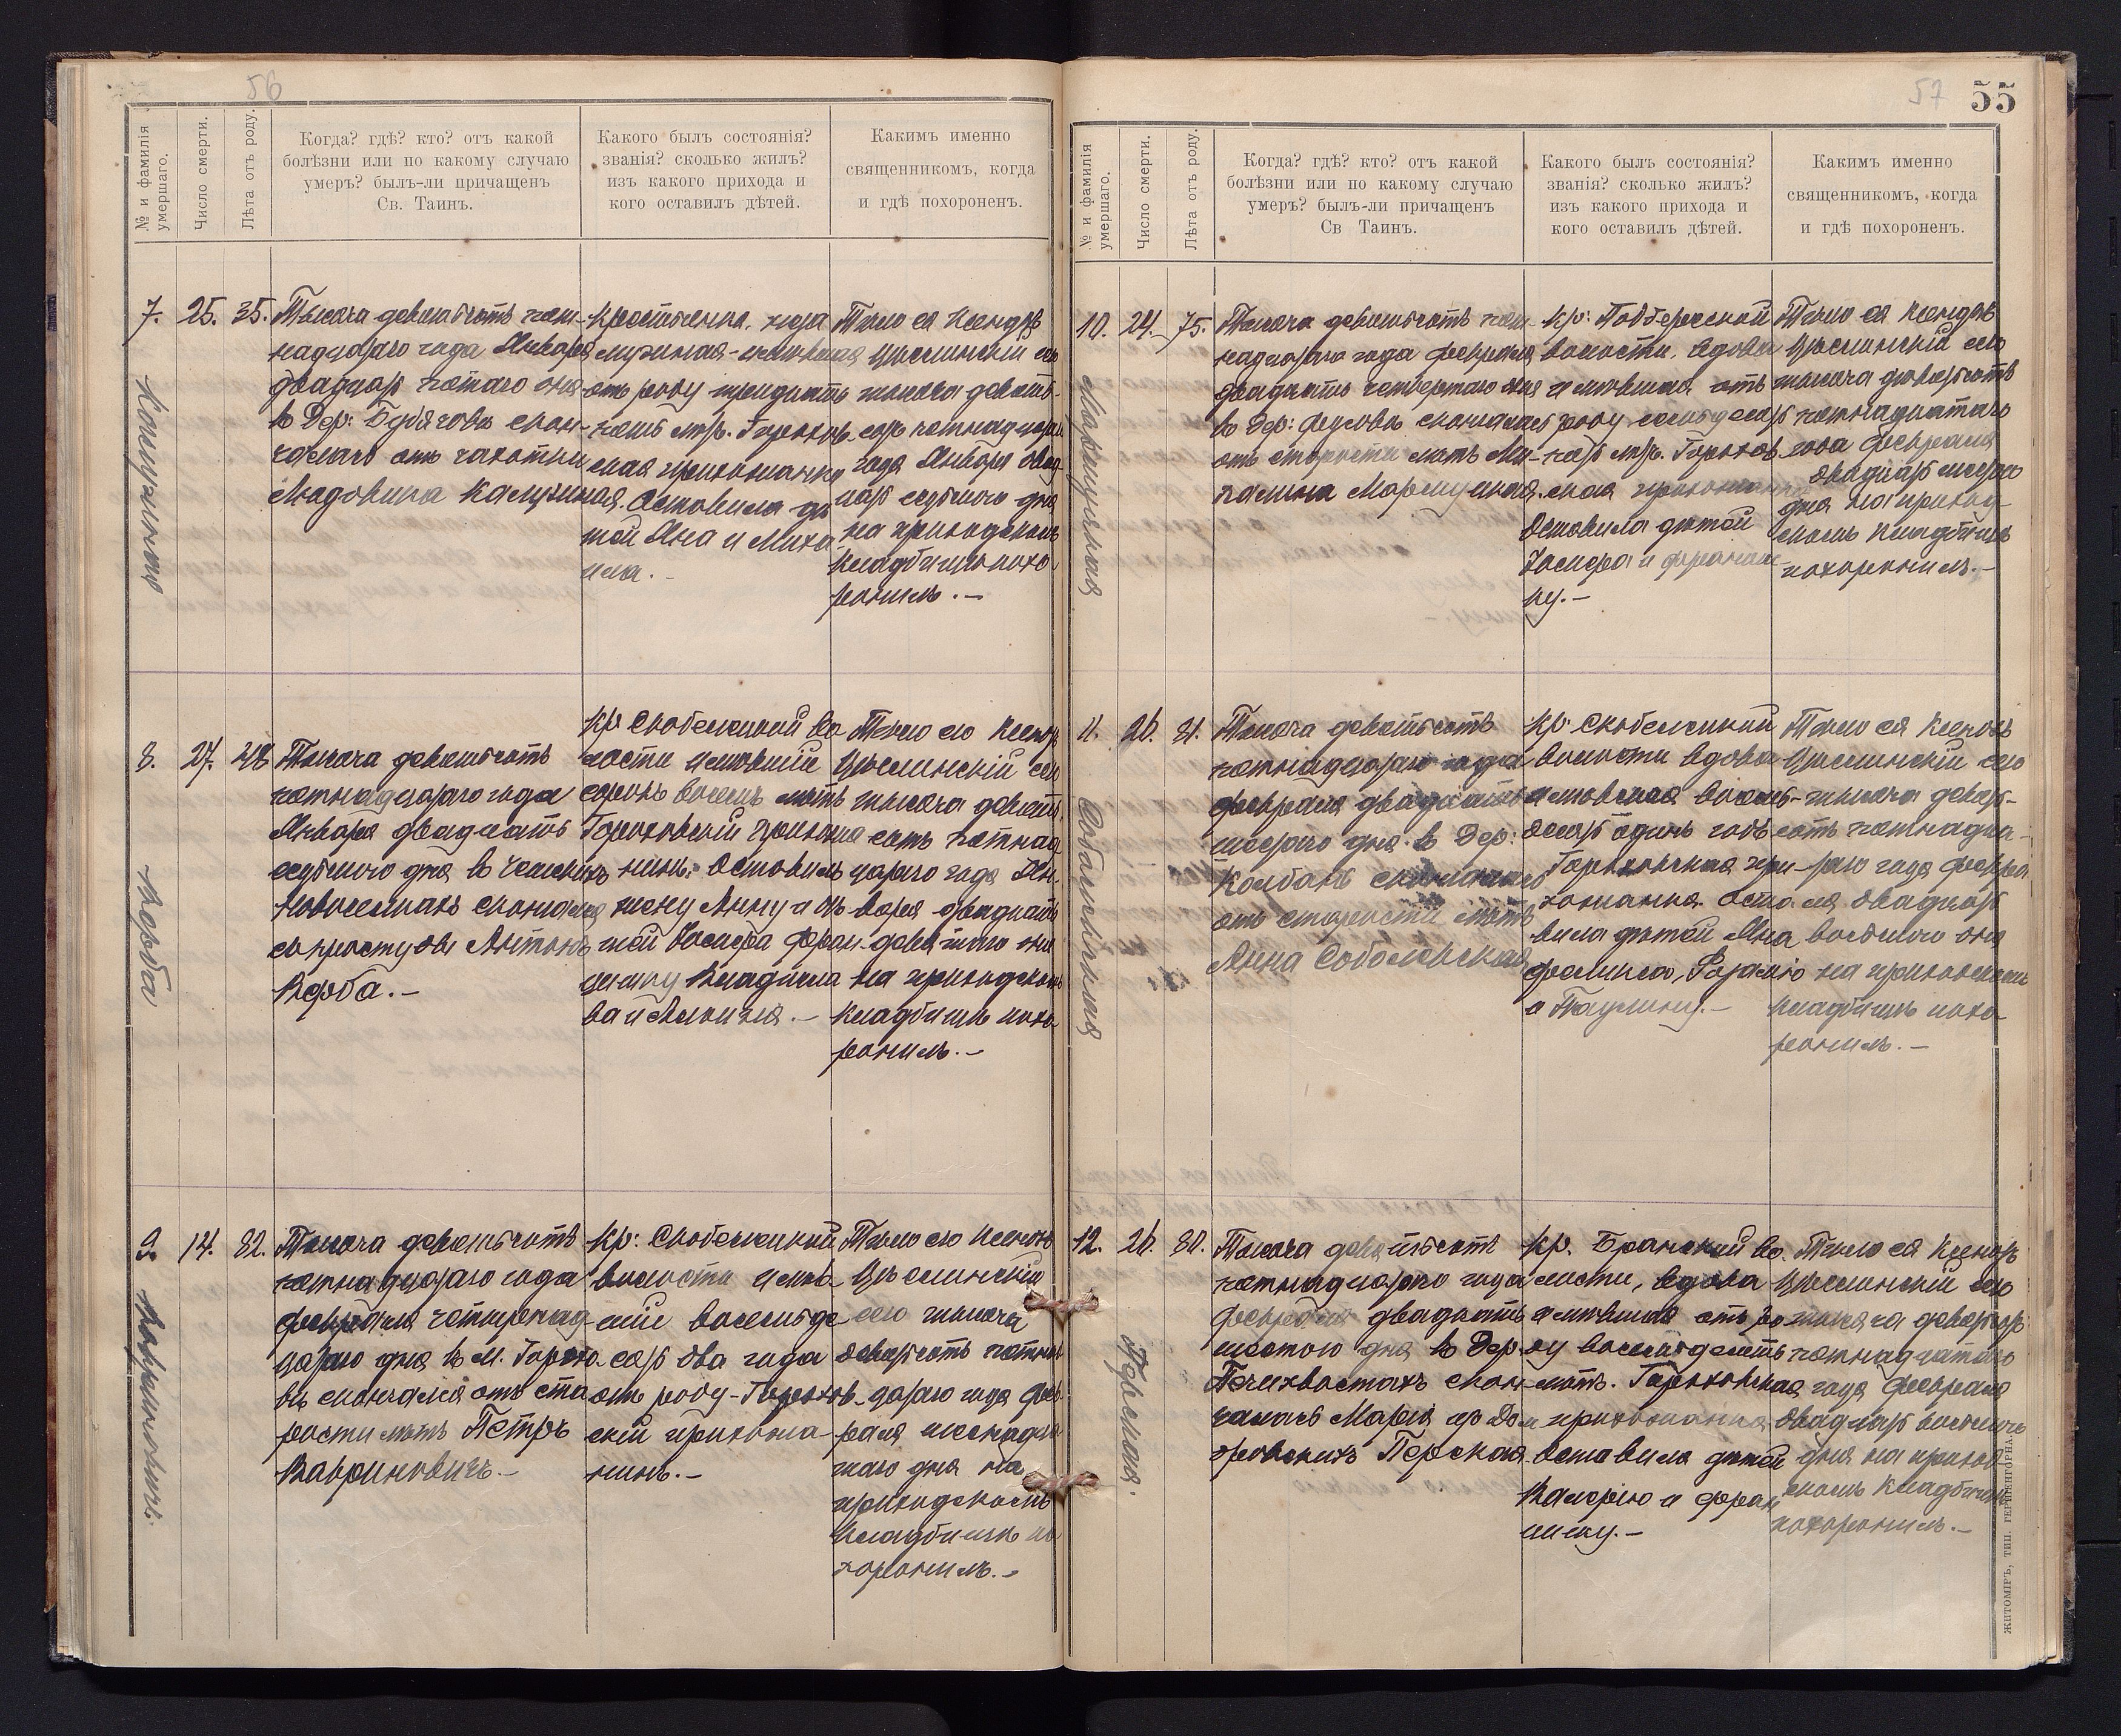 56
№ и фамилія умершаго.
Число смерти.
Лѣта отъ роду.
Когда? гдѣ? кто? отъ какой
болѣзни или по какому случаю
умеръ? былъ-ли причащенъ
Св. Таинъ.
Какого былъ состоянія?
званія? сколько жилъ?
изъ какого прихода и
кого оставилъ дѣтей.
Какимъ именно
священникомъ, когда
и гдѣ похороненъ.
7.
25.
35.
Тысяча девятьсотъ пят-
надцатаго года Января
двадцат пятаго дня
въ Дер: сконч-
чалась отъ чахотки
Людовика
Крестьянка, жена
отъ роду тридцать
пять лѣтъ. Горохов-
ская прихожанка
Оставила дѣ
тей Яна и Миха
ила.-
Тѣло ея Ксендзъ
сего
тысяча девять-
сотъ пятнадцат
года Января двад-
цат седьмого дня
на приходскомъ
кладбищѣ похо
ронилъ.-
8.
27.
48
Верба
Тысяча девятьсотъ
пятнадцатаго года
Января двадцать
седьмого дня въ Чешскихъ
Новоселкахъ скончался
отъ простуды Антонъ
Верба.-
Кр Скобелецкой Во
лости имѣвшій
сорокъ восемь лѣтъ
Гороховскій прихожа
нинъ. Оставилъ
жену Анну и дѣ-
тей Іосифа Фран-
цишку Владисла
ва и Алоизія.-
Тѣло его Ксендзъ
сего
тысяча девять
сотъ пятнад
цатаго года Ян-
варя двадцать
девятаго дня
на приходскомъ
кладбищѣ похо
ронилъ.-
9.
14.
82.
Вавриновичъ.
Тысяча девятьсотъ
пятнадцатаго года
Февраля четырнад-
цатаго дня въ М. Горохо
вѣ скончался отъ ста
рости лѣтъ Петръ
Вавриновичъ.-
Кр: Скобелецкой
волости имѣв
шій восемьде
сят два года
отъ роду-Горохов-
скій прихожа-
нинъ.-
Тѣло его Ксендзъ
сего тысяча
девятсотъ пятнад
цатаго года Фев
раля шестнадца
таго дня на
приходскомъ
кладбищѣ по
хоронилъ.-
57
55
№ и фамилія умершаго.
Число смерти.
Лѣта отъ роду.
Когда? гдѣ? кто? отъ какой
болѣзни или по какому случаю
умеръ? былъ-ли причащенъ
Св Таинъ.
Какого былъ состоянія?
званія? сколько жилъ?
изъ какого прихода и
кого оставилъ дѣтей.
Какимъ именно
священникомъ, когда
и гдѣ похороненъ.
10.
24.
75.
Тысяча девятьсотъ пят-
надцатаго года Февраля
двадцать четвертаго дня
въ Дер: скончалась
отъ старости лѣтъ
Кр: Подберезской
волости. вдова
имѣвшая отъ
роду семьдесят
пят лѣт. Горохов-
ская прихожанка
Оставила дѣтей
Іосифа и Франциш-
ку.-
Тѣло ея Ксендзъ
сего
тысяча девятсотъ
пятнадцатаго
года Февраля
двадцат шестого
дня на приход-
скомъ кладбищѣ
похоронилъ.-
11.
26.
81.
Соболевская
Тысяча девятьсотъ
пятнадцатаго года
Февраля двадцать
шестого дня въ Дер:
Колбахъ скончалась
отъ старости лѣтъ
Анна Соболевская
Кр: Скобелецкой
волости вдова
имѣвшая восемь-
десят одинъ годъ
Гороховская при-
хожанка. Оста
вила дѣтей Яна
Феликса, Розалію
и Паулину.-
Тѣло ея Ксендзъ
сего
тысяча девят-
сотъ пятнадца-
таго года Февра
ля двадцат
восьмого дня
на приходскомъ
кладбищѣ похо-
ронилъ.-
12.
26.
80.
Перская.
Тысяча девятьсотъ
пятнадцатаго года
Февраля двадцать
шестого дня въ Дер
Печихвостахъ скон-
чалась Марія
Перская
Кр. Бранской Во-
лости, вдова
имѣвшая отъ ро
ду восемьдесятъ
лѣтъ. Гороховская
прихожанка
Оставила дѣтей
Валерію и Фран
цишку.-
Тѣло ея Ксендзъ
сего
тысяча девятсот
пятнадцатаго
года Февраля
двадцат восьмого
дня на приход
скомъ кладбищѣ
похоронилъ.-
ЖИТОМІРЪ, ТИП.